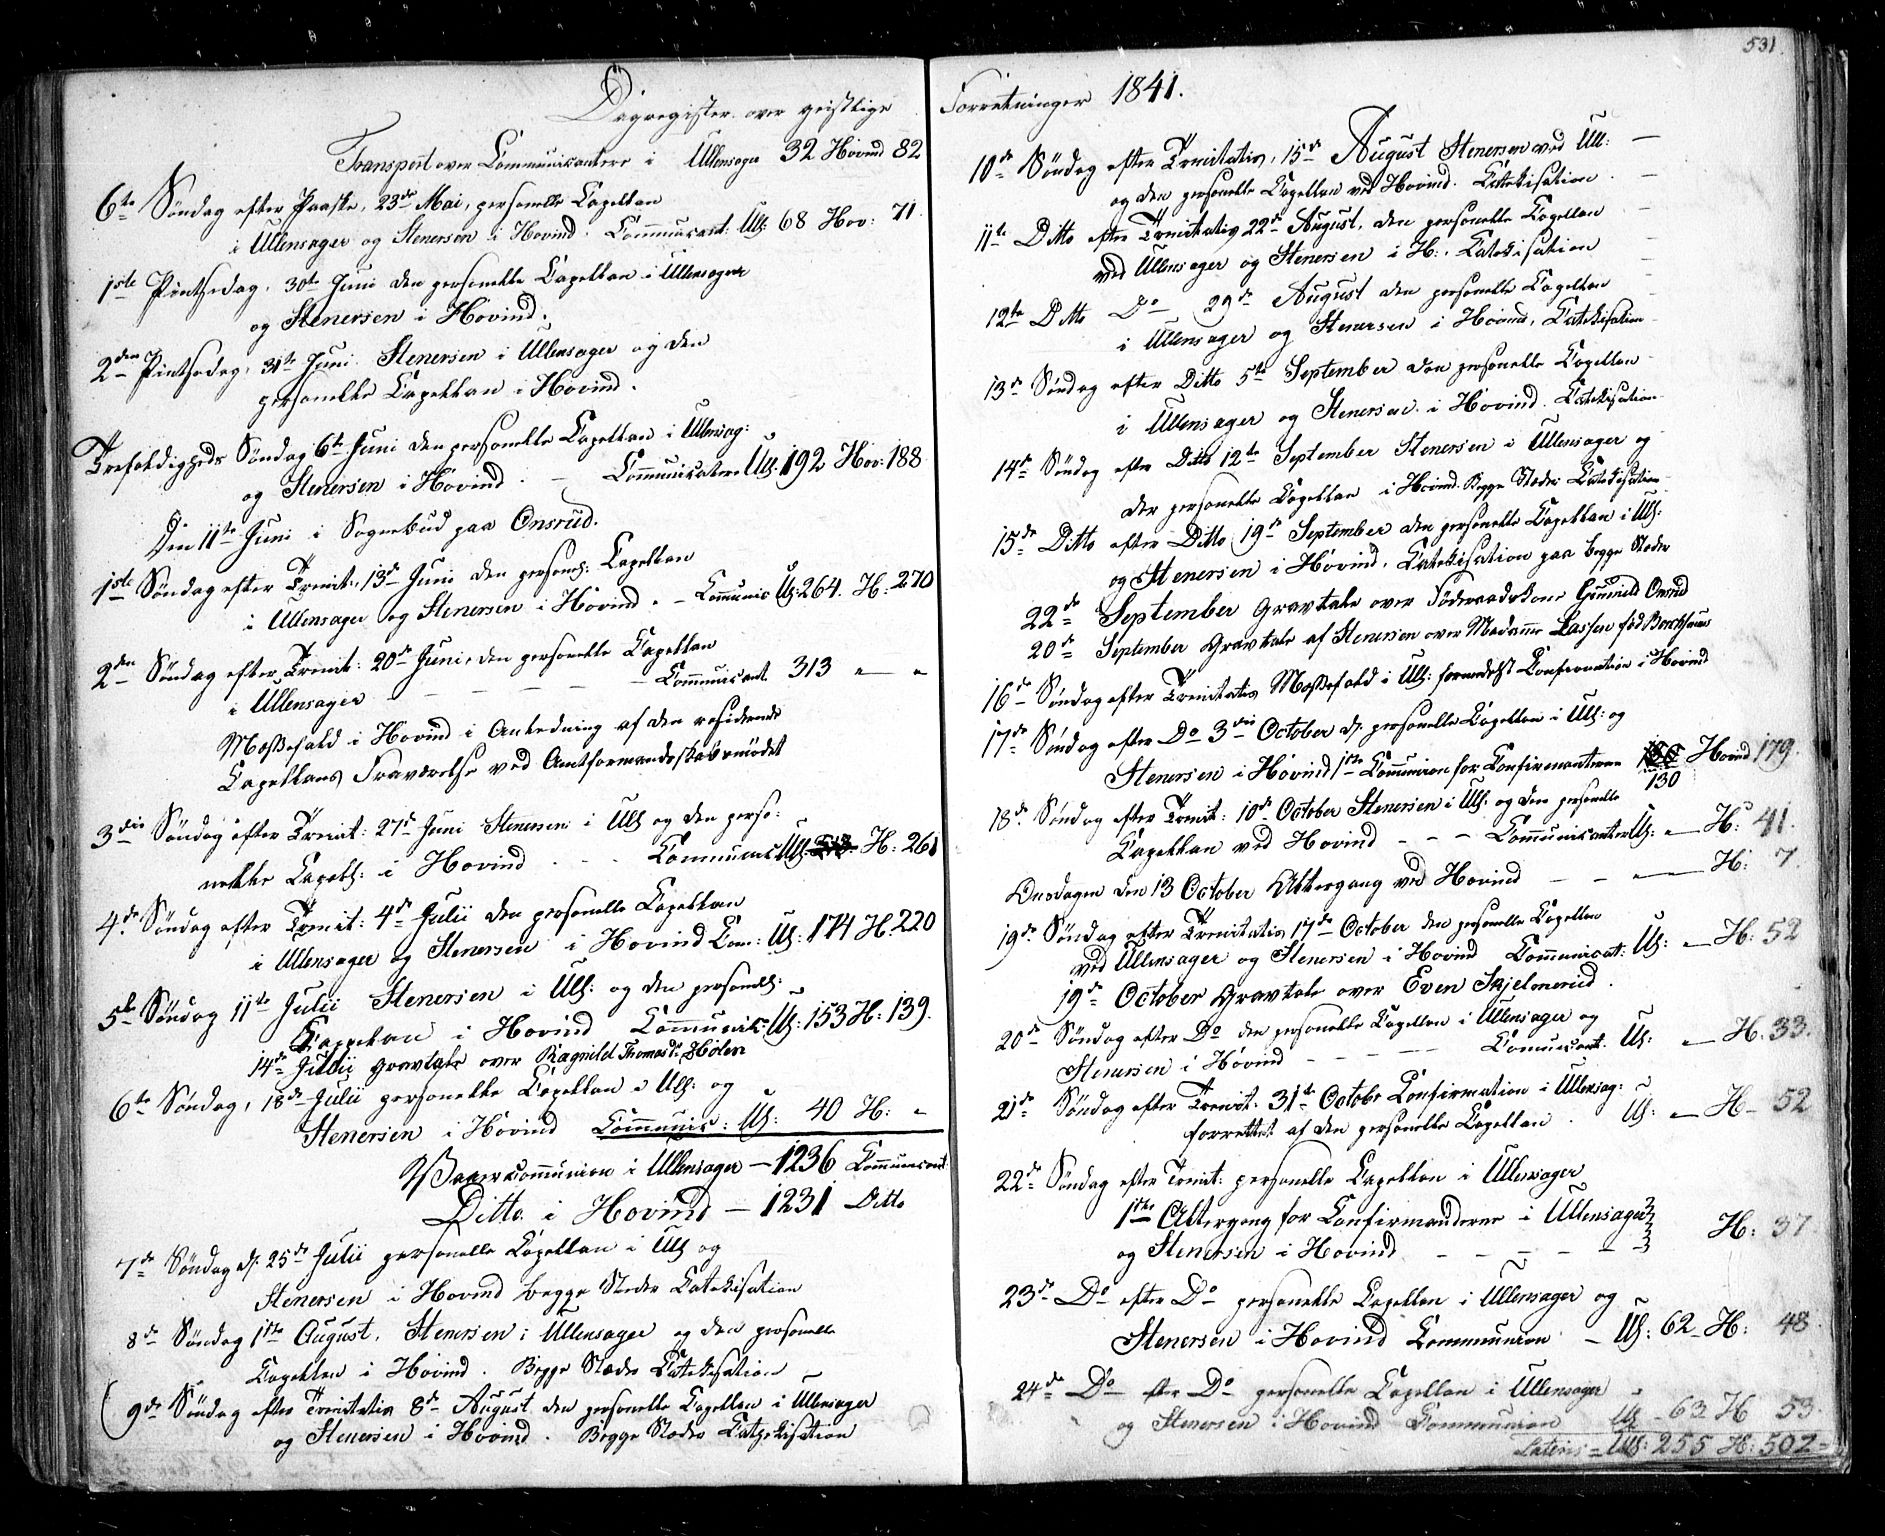 Dagregister over geistlige
Transport over Communicantere i Ullensager 32 Hovind 82
6te Søndag efter Paaske, 23de Mai, personelle Capellan
i Ullensager og Stenersen i Hovind. Communicant. Ull: 68 Hov: 71.
1ste Pintsedag, 30te Juni den personelle Capellan i Ullensager
og Stenersen i Hovind.
2den Pintsedag, 31te Juni Stenersen i Ullensager og den
personelle Capellan i Hovind.
Trefoldigheds Søndag 6te Juni den personelle Capellan i Ullensag:
og Stenersen i Hovind. — Communicatere Ull. 192 Hov: 188
Den 11te Juni i Sognebud paa Onsrud.
1ste Søndag efter Trinit: 13de Juni den personel: Capellan
i Ullensager og Stenersen i Hovind. – Communic Ull: 264. H: 270
2den Søndag efter Trinit: 20de Juni, den personelle Capellan
i Ullensager — — — — Communicant 313 " — "
Messefald i Hovind i Anledning af den residerende
Capellans Fraværelse ved Amtformandskabsmødet
3die Søndag efter Trinit: 27de Juni Stenersen i Ull og den perso:
nelle Capell: i Hovind . . . Communic Ull: H: 261
4de Søndag efter Trinit: 4de Julii den personelle Capellan
i Ullensager og Stenersen i Hovind Com: Ull: 174 H. 220
5te Søndag 11te Julii Stenersen i Ull: og den personell:
Cappelan i Hovind Communic: Ull: 153 H: 139.
14de Julii Gravtale over Ragnild Thomasdr Holen
6te Søndag, 18de Julii personelle Capellan i Ull: og
Stenersen i Hovind Communic: Ull: 40 H: "
Vaarcommunion i Ullensager — 1236 Communicant
Ditto i Hovind — 1231 Ditto
7de Søndag d: 25de Julii personelle Capellan i Ull og
Stenersen i Hovind begge Steder Catekisation
8de Søndag 1ste August, Stenersen i Ullensager og den personelle
Capellan i Hovind. Begge Steder Catekisation
9de Søndag efter Trinitatis 8de August den personelle Capellan i Ullensager
og Stenersen i Hovind. Begge Steder Catekisation
531.
Forretninger 1841.
10de Søndag efter Trinitatis, 15de August Stenersen ved Ull: —
og den personelle Capellan ved Hovind. Catekisation. —
11te Ditto efter Trinitatis 22de August, den personelle Capellan
ved Ullensager og Stenersen i H:. Catekisation
12te Ditto Do 29de August den personelle Capellan
i Ullensager og Stenersen i Hovind, Catekisation
13de Søndag efter Ditto 5te September den personelle Capellan
i Ullensager og Stenersen i Hovind. Catekisation
14de Søndag efter Ditto 12te September Stenersen i Ullensager og
den personelle Capellan i Hovind. Begge Steder Catekisation
15de Ditto efter Ditto 19de September den personelle Capellan i Ull:
og Stenersen i Hovind. Catekisation paa begge Steder
22de September Gravtale over Føderaadskone Gunnild Onsrud
20de September Gravtale af Stenersen over Madamme Lassen fød
16de Søndag efter Trinitatis Messefald i Ull: formedelst Confirmation i Hovind
17de Søndag efter Do 3die October d: personelle Capellan i Ull: og
Stenersen i Hovind 1ste Communion for Confirmanterne Hovind 179.
130
18de Søndag efter Trinit: 10de October Stenersen i Ull: og den personelle
Capellan ved Hovind — — — Communicanter Ull: " — H: 41.
Onsdagen den 13 October Altergang ved Hovind — — — H: 7.
19de Søndag efter Trinitatis 17de October den personelle Capellan
ved Ullensager og Stenersen i Hovind Communicat: Ull: " — H: 52
19de October Gravtale over Even Skjelmerud.
20de Søndag efter Do den personelle Capellan i Ullensager og
Stenersen i Hovind — — — — Comunicant. Ull: " — H. 33.
21de Søndag efter Trinit: 31te Octobr Confirmation i Ullensag:
forrettet af den personelle Capellan. Ull: " — H — 52
22de Søndag efter Trinit: personelle Capellan i Ullensager
1ste Altergang for Confirmanderne i Ullensager
og Stenersen i Hovind — — — — — H: 37
23de Do efter Do personelle Capellan i Ullensager og
Stenersen i Hovind Communion — Ull: 62 – H: 48
24de Do efter Do personelle Capellan i Ullensager
og Stenersen i Hovind Communion Ull – 63 H 53.
Lateris = Ull: 255 H: 502 =